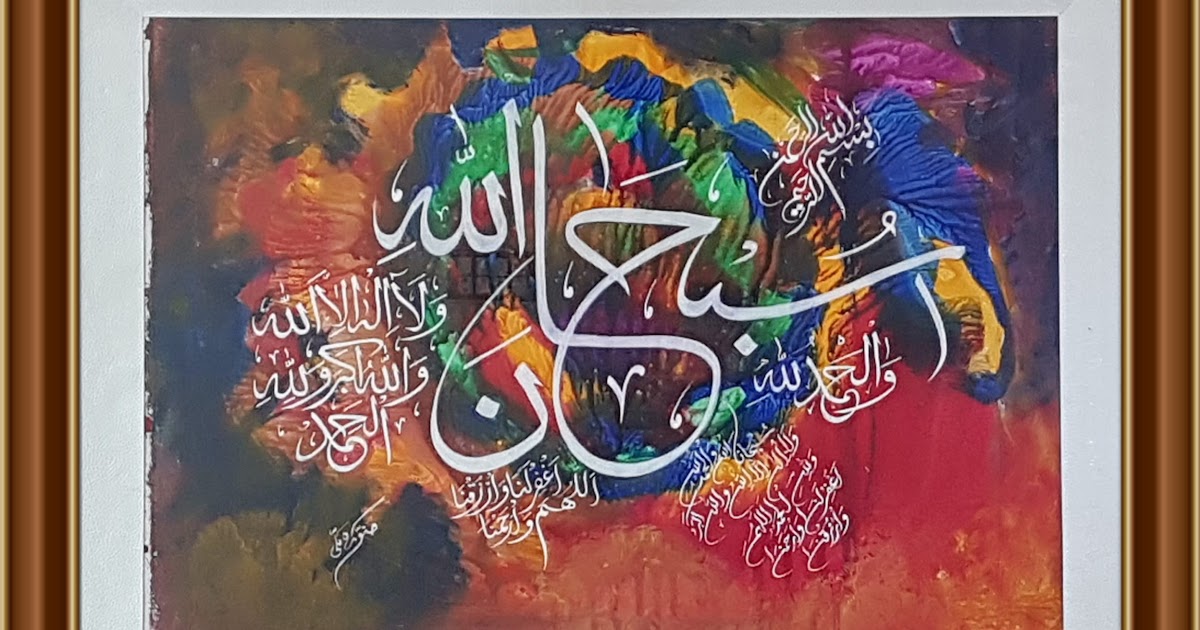 بسم الله الرحمن
الرحيم
سبحان الله
والحمد لله
ولا اله الا الله
والله اكبر ولله
الحمد
اللهم اغفر لنا وارزقنا
وارحمنا